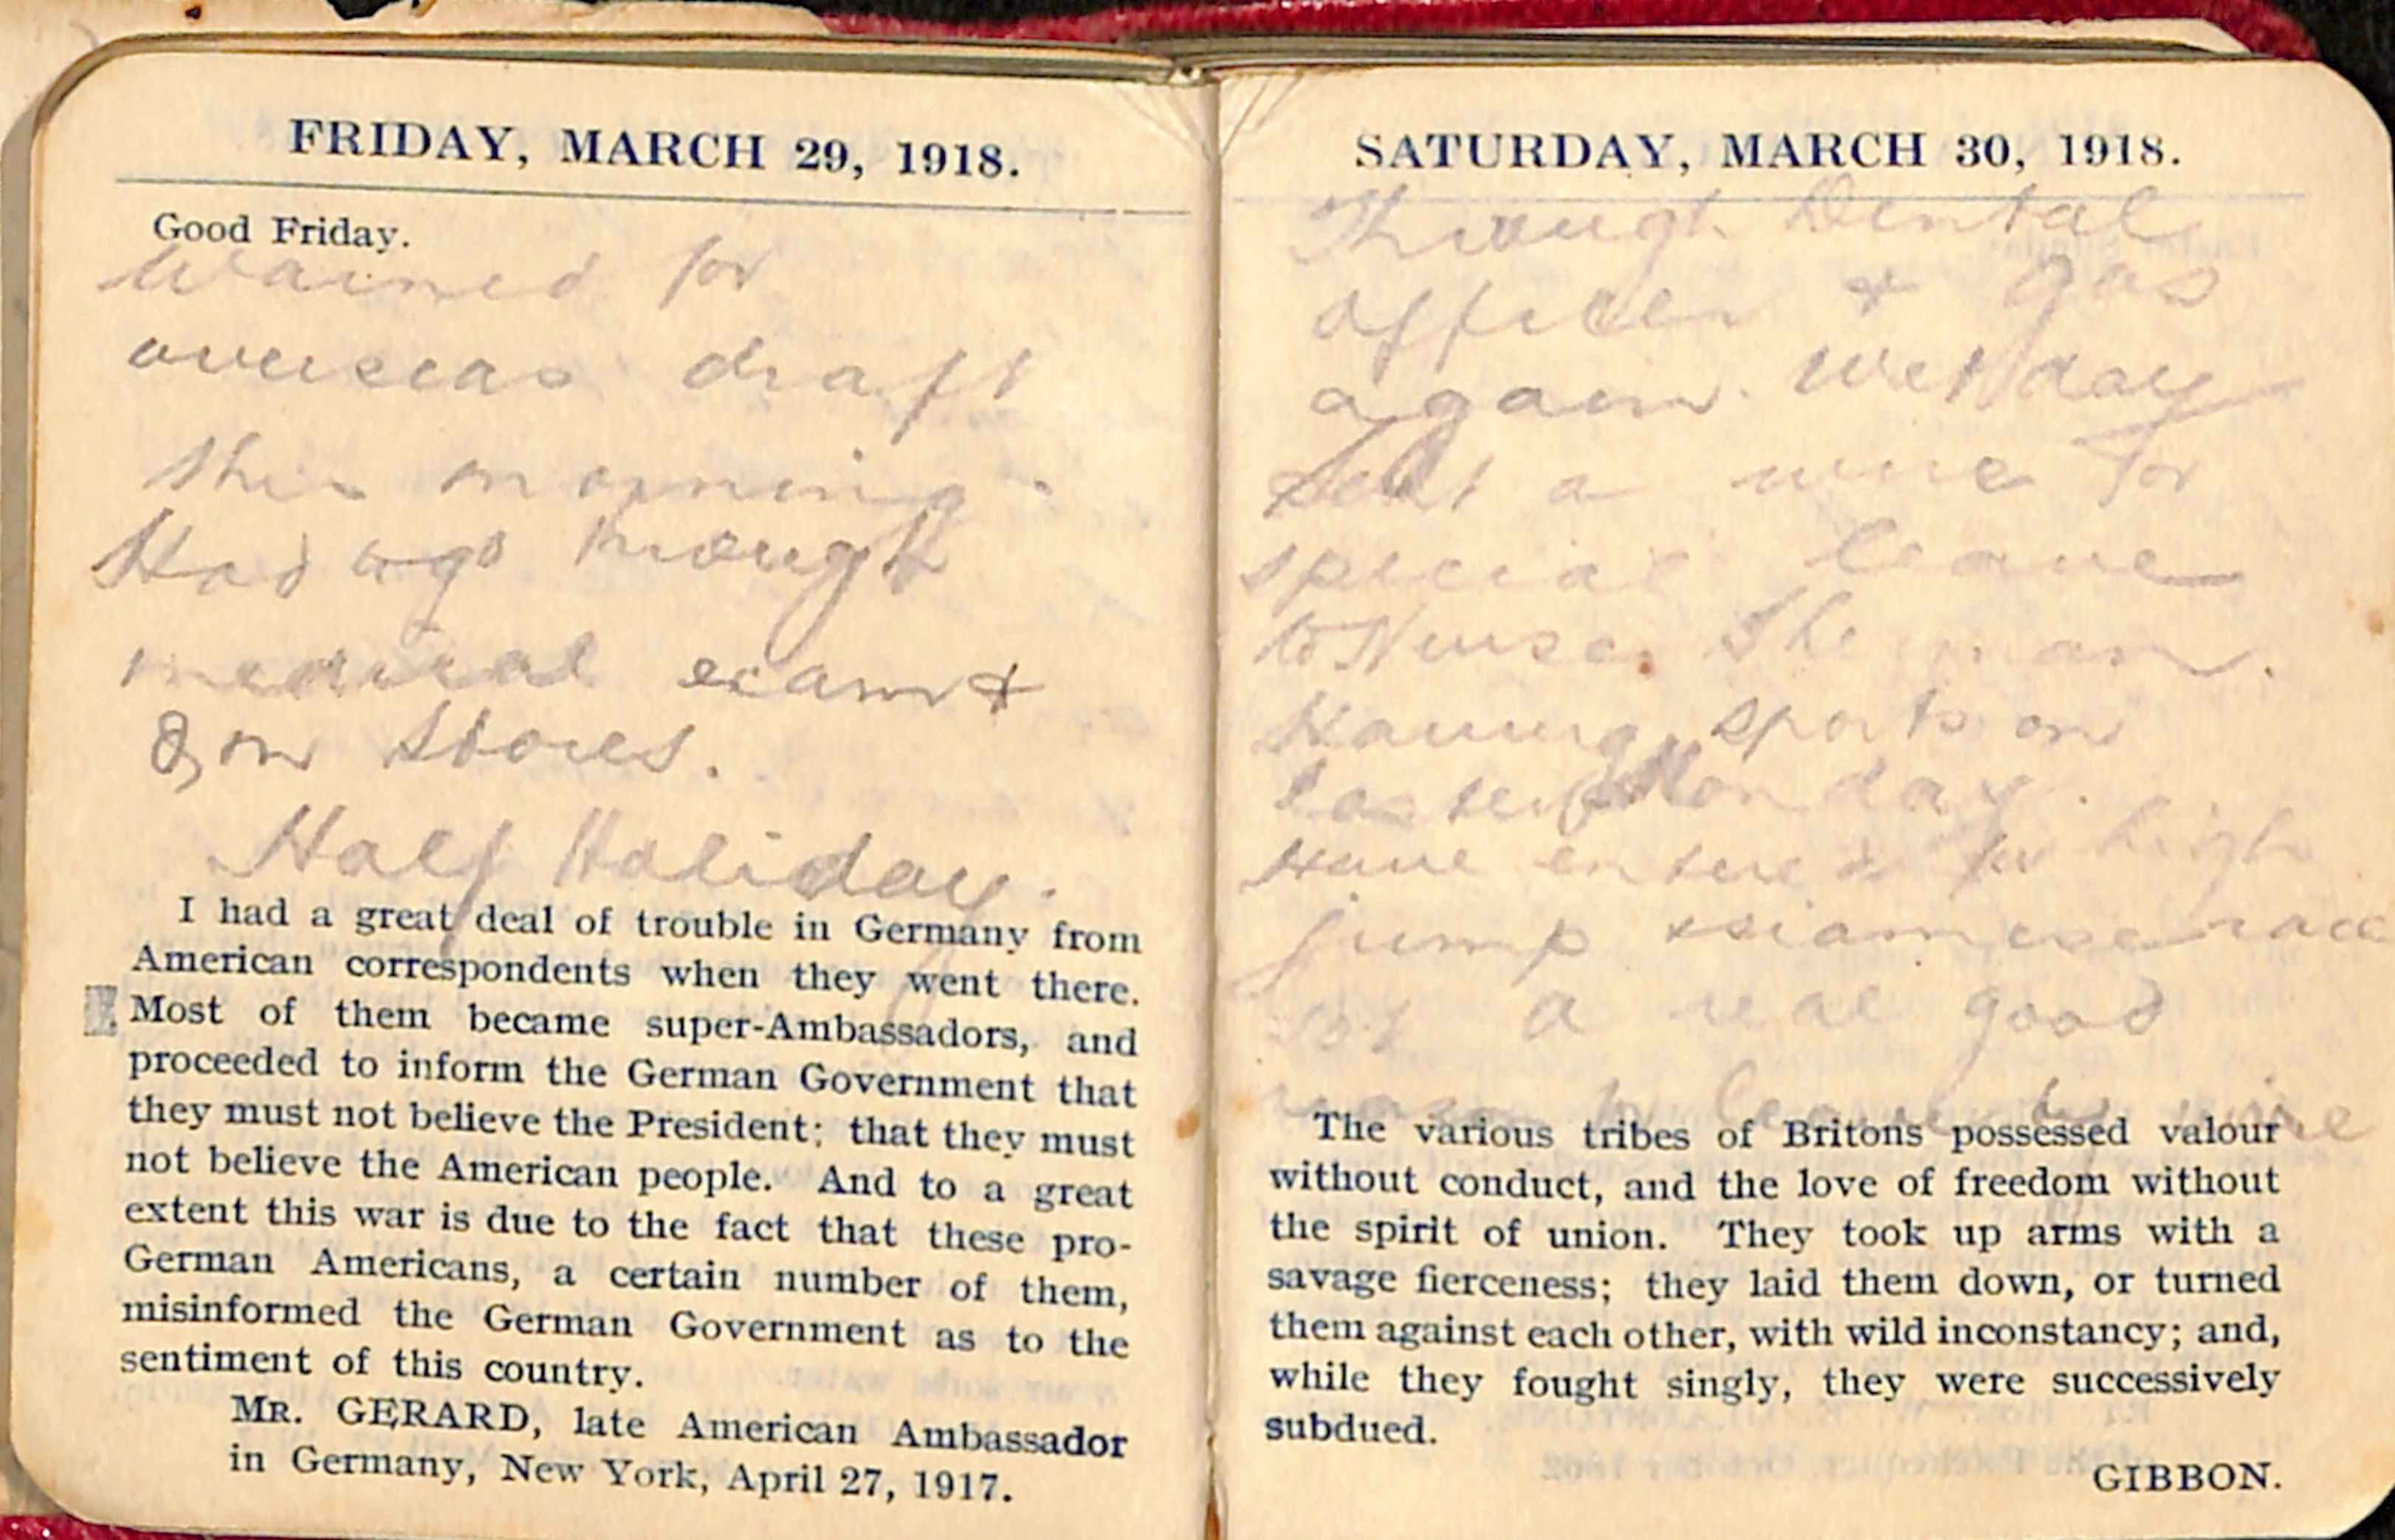 FRIDAY, MARCH 29, 1918.
Good Friday.
Warned for
overseas draft
this morning.
Had to go through
medical exam &
Qm Stores.
Half Holiday.
I had a great deal of trouble in Germany from
American correspondents when they went there.
Most of them became super-Ambassadors, and
proceeded to inform the German Government that
they must not believe the President; that they must
not believe the American people. And to a great
extent this war is due to the fact that these pro-
German Americans, a certain number of them,
misinformed the German Government as to the
sentiment of this country.
MR. GERARD, late American Ambassador
in Germany, New York, April 27, 1917.
SATURDAY, MARCH 30, 1918.
Through Dental
officer & gas
again. Wet day
Sent a wire for
special leave
to Nurse
Having sports on
Easter Monday.
Have entered for high
jump & siamese race
a real good
leave by wire
The various tribes of Britons possessed valour
without conduct, and the love of freedom without
the spirit of union. They took up arms with a
savage fierceness; they laid them down, or turned
them against each other, with wild inconstancy; and,
while they fought singly, they were successively
subdued.
GIBBON.